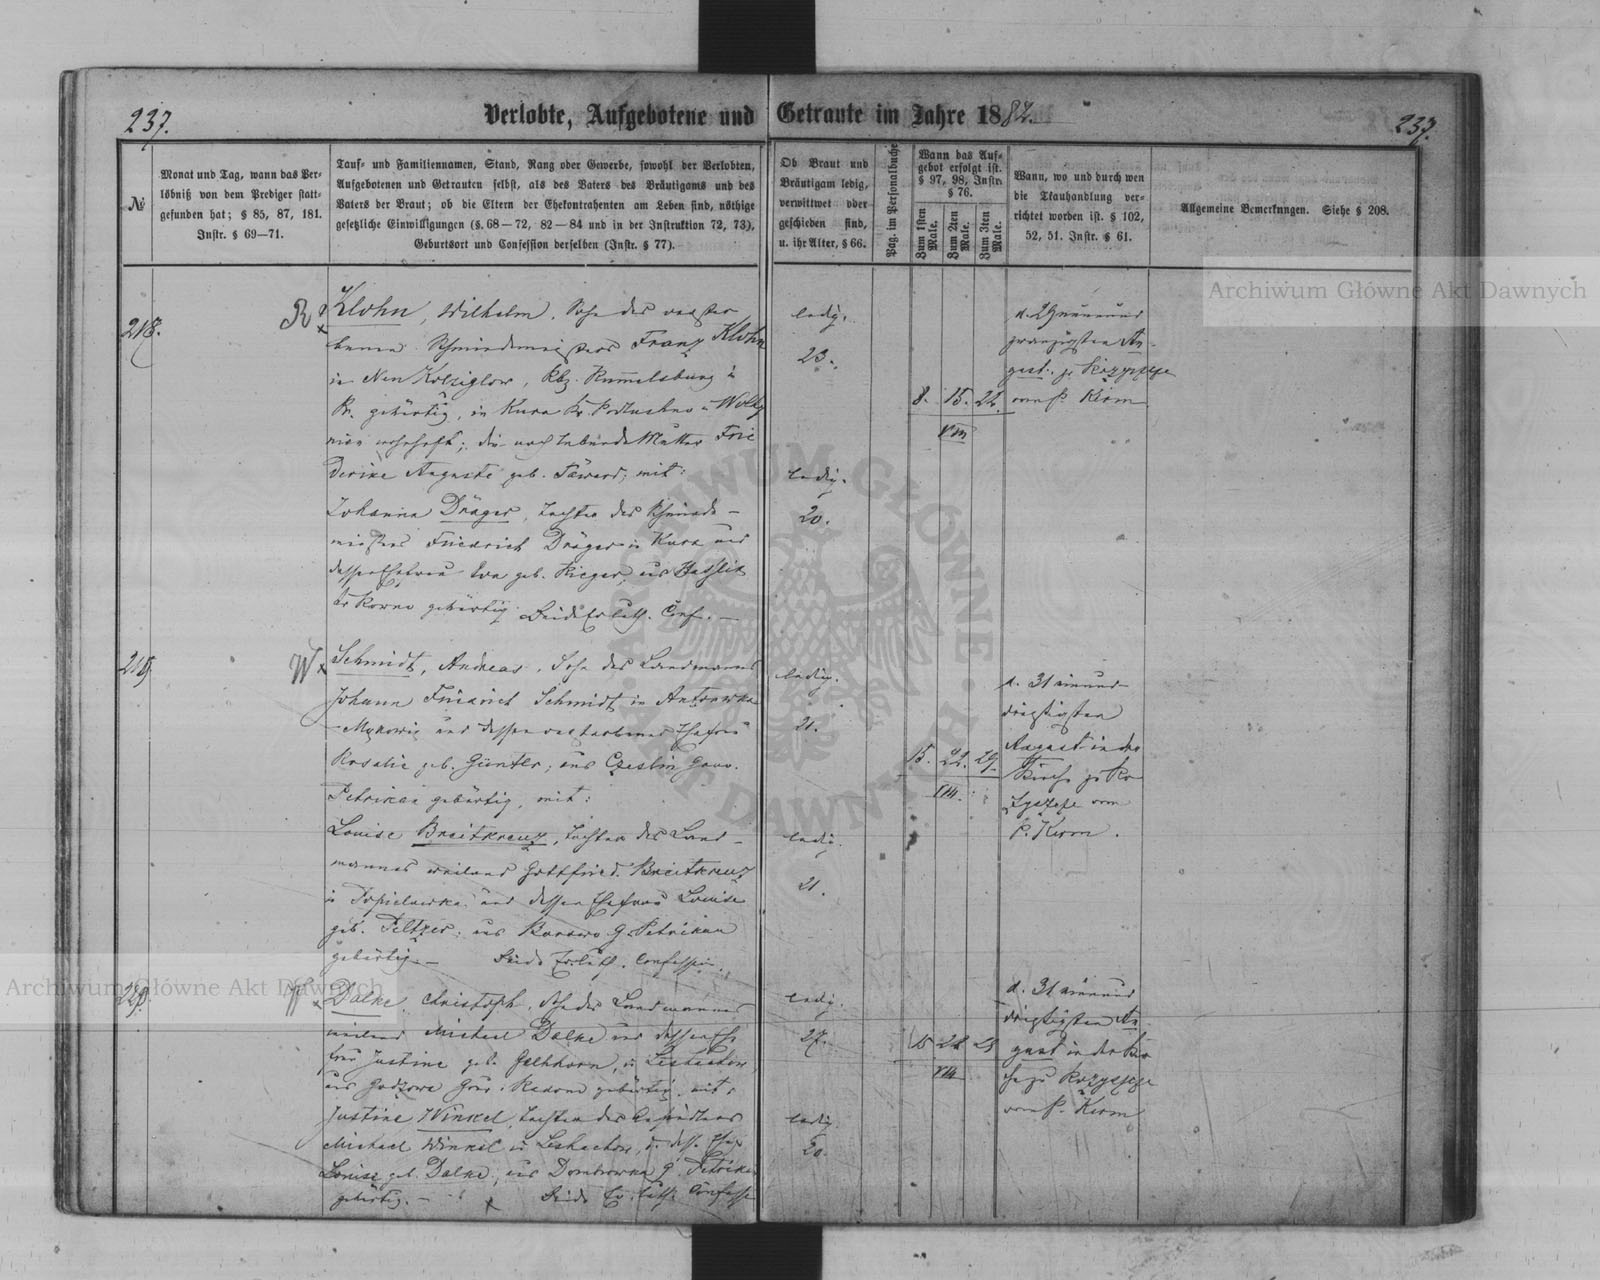 237.
Verlobte, Aufgebotene und Getraute im Jahre 1882.
237.
№
Monat und Tag, wann das Ver-
löbniß von dem Prediger statt-
gefunden hat; § 85, 87, 181.
Instr. § 69—71.
Tauf- und Familiennamen, Stand, Rang oder Gewerbe, sowohl der Verlobten,
Aufgebotenen und Getrauten selbst, als des Vaters des Bräutigams und des
Vaters der Braut; ob die Eltern der Ehekontrahenten am Leben sind, nöthige
gesetzliche Einwilligungen (§. 68—72, 82—84 und in der Instruktion 72, 73),
Geburtsort und Confession derselben (Instr. § 77).
Ob Braut und
Bräutigam ledig,
verwittwet oder
geschieden sind,
u. ihr Alter, § 66.
Pag. im Personalbuche
Wann das Auf-
gebot erfolgt ist.
§ 97, 98, Instr.
§ 76.
Zum 1sten Male.
Zum 2ten Male.
Zum 3ten Male.
Wann, wo und durch wen
die Trauhandlung ver-
richtet worden ist. § 102,
52, 51. Instr. § 61.
Allgemeine Bemerkungen. Siehe § 208.
218.
R
Klohn, Wilhelm, Sohn des verstor
benen Schmiedemeisters Franz Klohn
in Neu Kolziglow, Kr. Rummelsburg in
Pr. gebürtig, in Kura wohnhaft; die noch lebende Mutter Frie
derike Auguste geb. mit:
Johanna Dräger, Tochter des Schmiede-
meisters Friedrich Dräger in Kura und
dessen Ehefrau Eva geb. Rieger, aus
gebürtig. Beide Ev. luth. Conf. —
ledig.
23.
ledig.
20.
8. 15. 22.
VIII
d. 29 neunund
zwanzigsten Au-
gust. zu Rozyszcze
vom P. Kerm
219.
W
Schmidt, Andreas, Sohn des Landmannes
Johann Friedrich Schmidt in Antonowka
und dessen verstorbener Ehefrau
Rosalie geb. Günter; aus Czestin Gouv.
Petrikau gebürtig, mit:
Louise Breitkreuz, Tochter des Land-
mannes weiland Gottfried Breitkreuz
in Topielawka und dessen Ehefrau Louise
geb. Peltzer; aus G. Petrikau
gebürtig. — Beide Ev. luth. Confession.
ledig.
21.
ledig.
21.
15. 22. 29.
VIII.
d. 31 einund
dreißigsten
August in der
Kirche zu Ro-
zyszcze vom
P. Kerm.
220.
W
Dalke, Christoph, Sohn des Landmannes
weiland Michael Dalke und dessen Ehe
frau Justine geb. in
aus Gouv. Radom gebürtig, mit:
Justine Winkel, Tochter des
Michael Winkel in
Louise geb. Dalke; aus Dombrowka G. Petrikau
gebürtig. — Beide Ev. luth. Confess
ledig.
27.
ledig.
20.
15 22 29
VIII
d. 31 einund
dreißigsten Au
gust in der Kir
che zu Rozyszcze
vom P. Kerm
Archiwum Główne Akt Dawnych
Archiwum Główne Akt Dawnych
ARCHIWUM GŁÓWNE AKT DAWNYCH